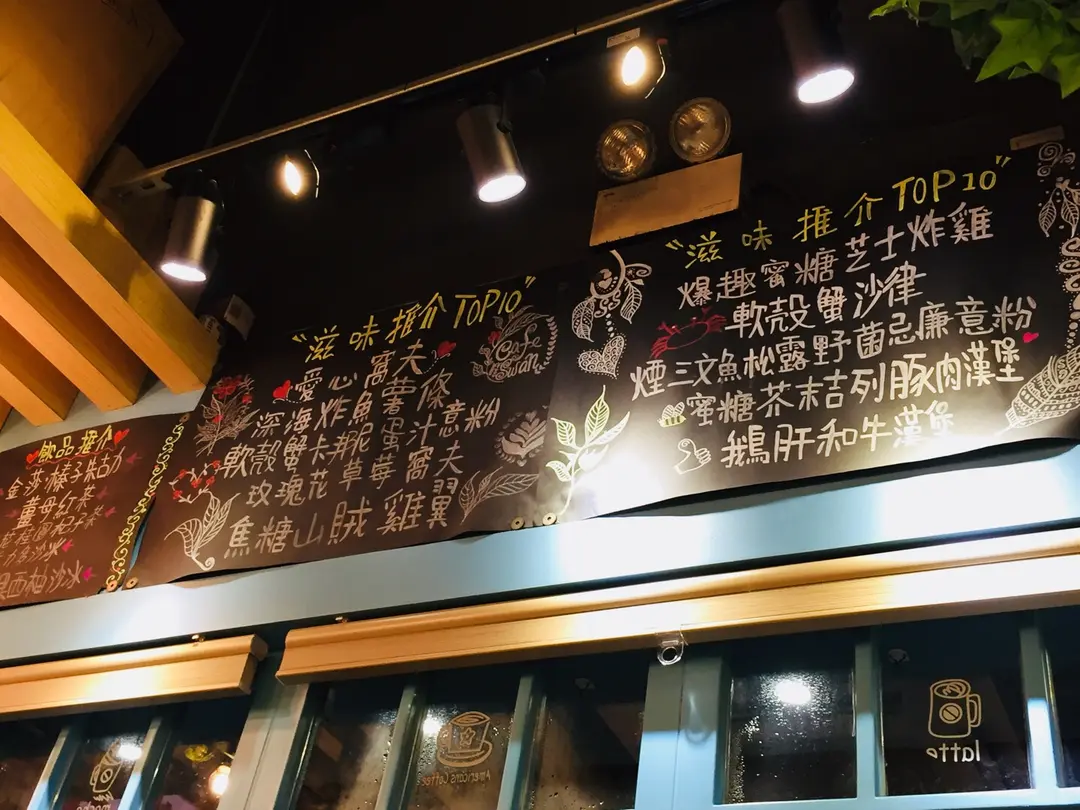 飲品推介
金莎榛子朱古力
薑母紅茶
西柚沙冰
"滋味推介TOP10"
愛心窩夫
深海炸魚薯條
軟殼蟹卡邦尼蛋汁意粉
玫瑰花草莓窩夫
焦糖山賊雞翼
Cafe
"滋味推介TOP10"
爆趣蜜糖芝士炸雞
軟殼蟹沙律
煙三文魚松露野菌忌廉意粉
蜜糖芥末吉列豚肉漢堡
鵝肝和牛漢堡
Americano Coffee
latte